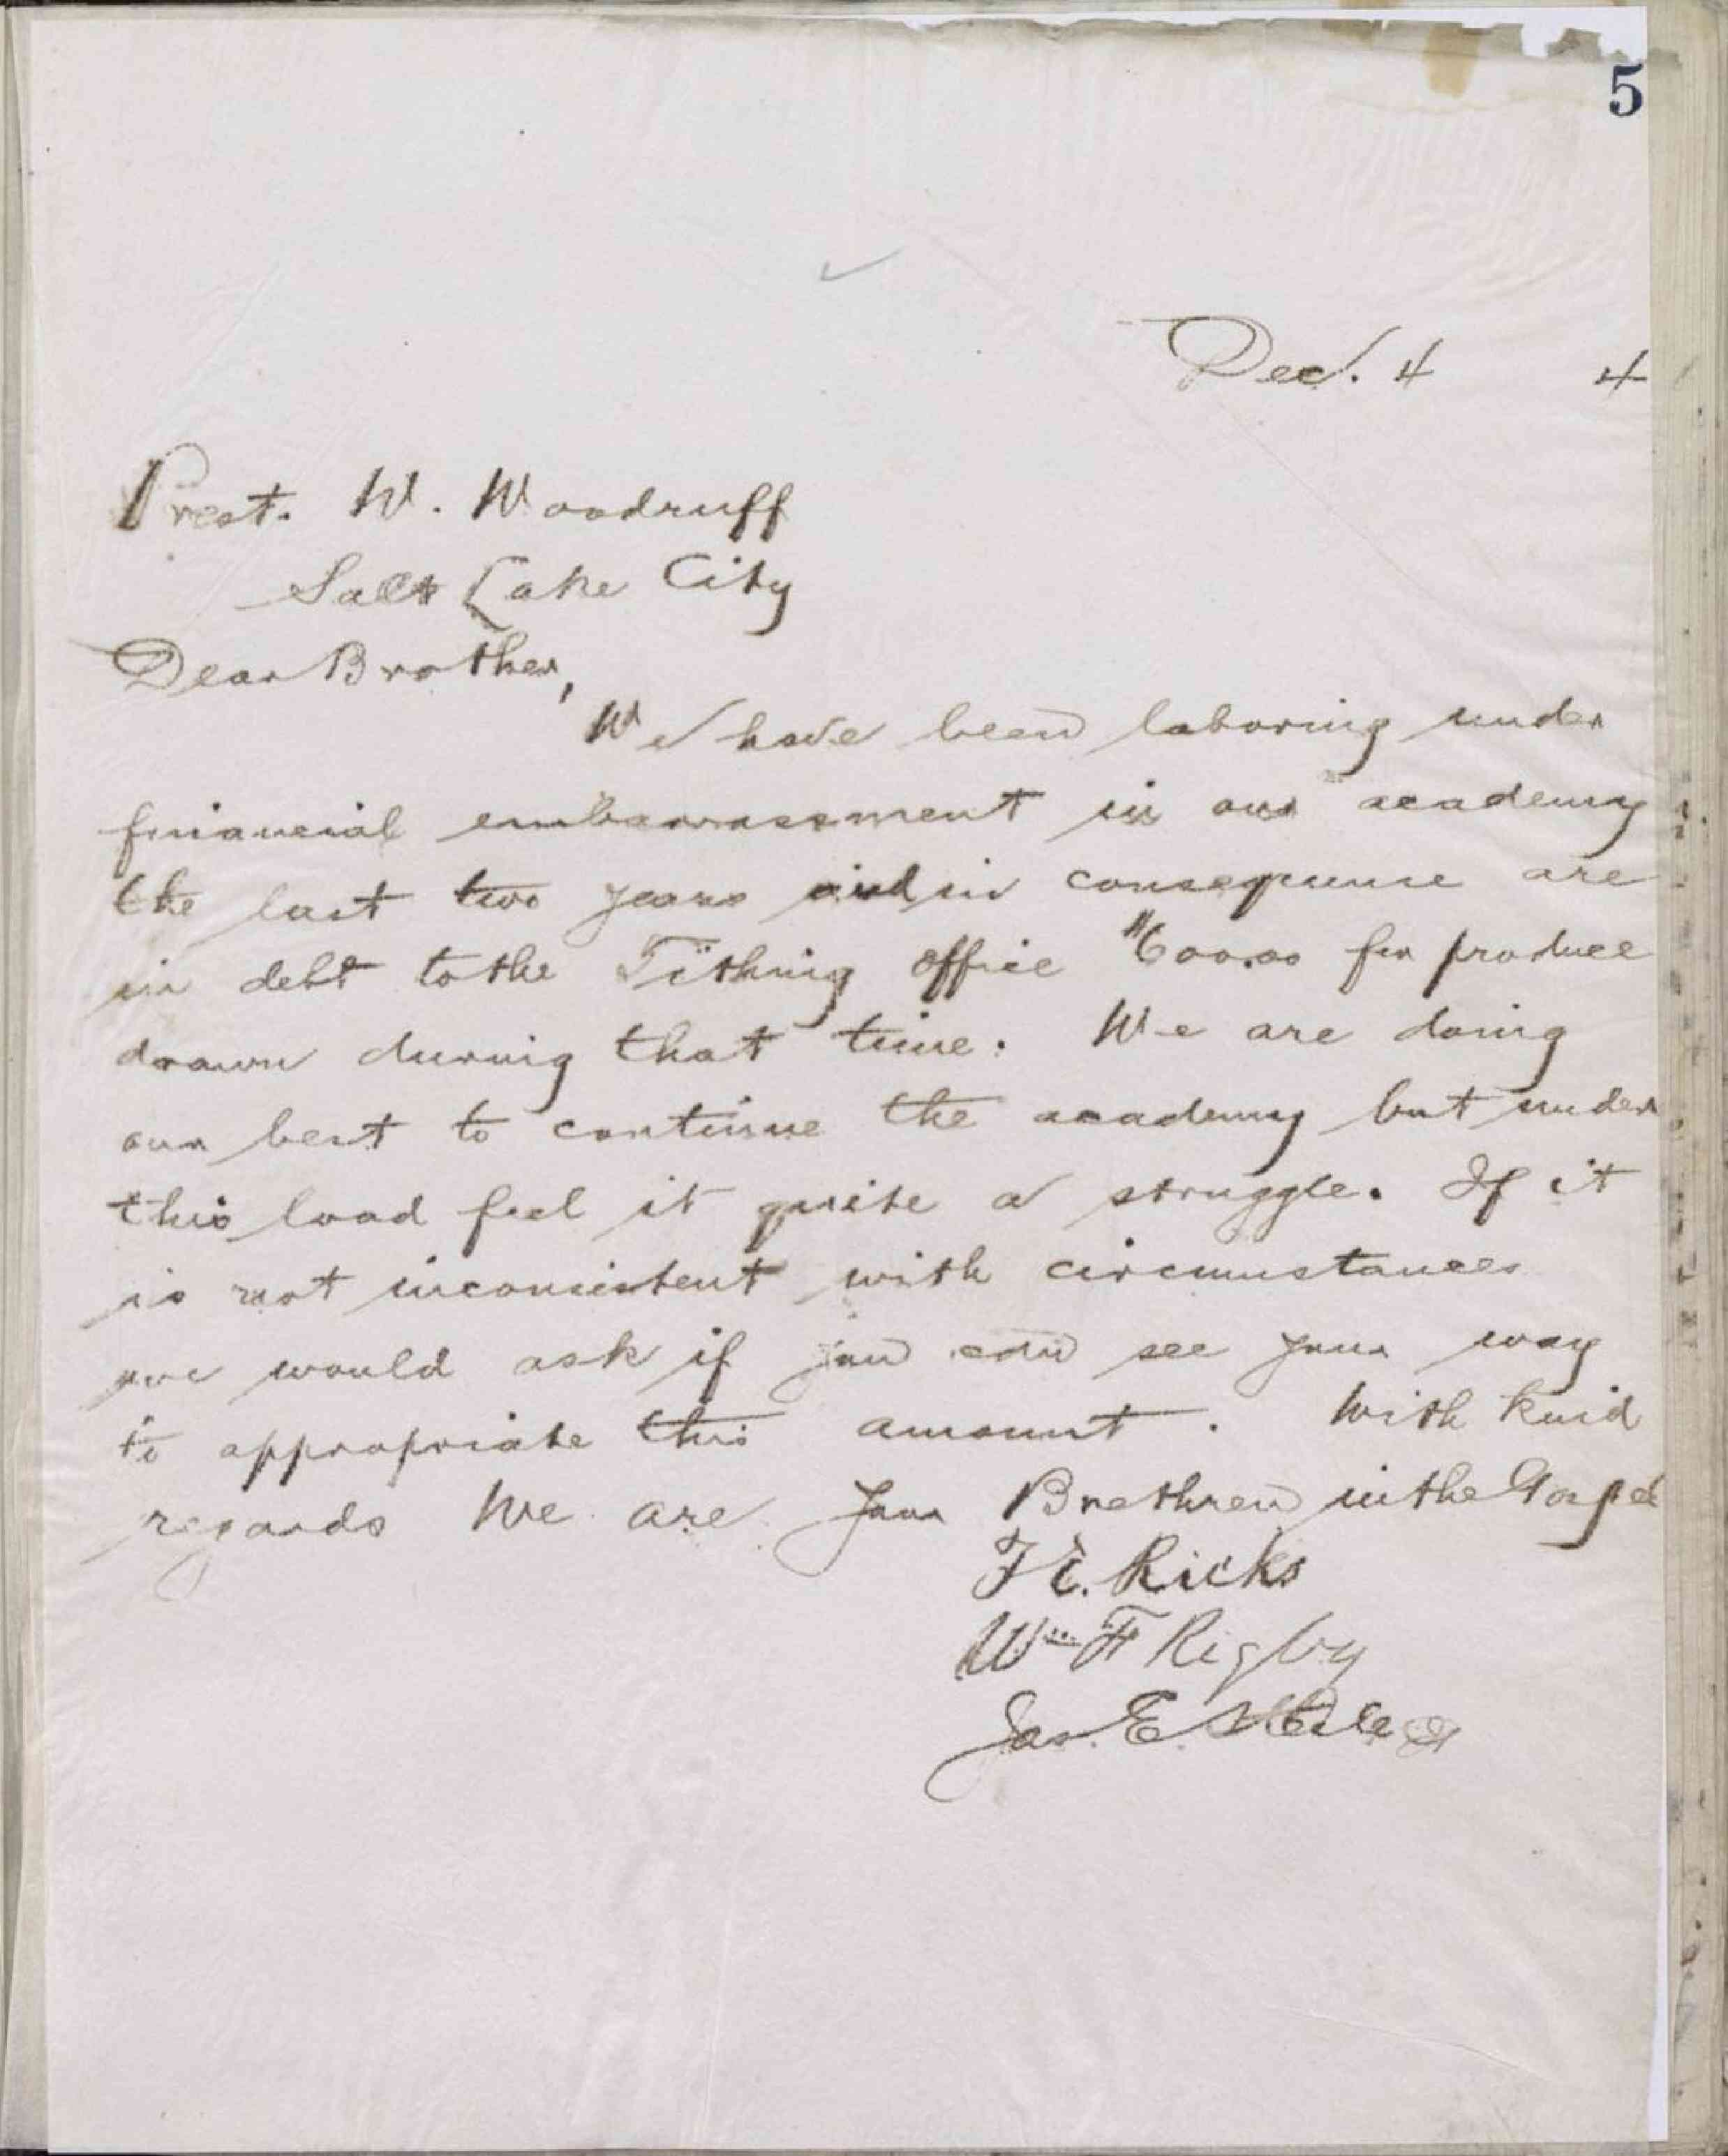 5
Dec. 4 4
Prest. W. Woodruff
Salt Lake City
Dear Brother,
We have been laboring under
financial embarrassment in our academy
the last two years and in consequence are
in debt to the Tithing office $600.00 for produce
drawn during that time. We are doing
our best to continue the academy but under
this load feel it quite a struggle. If it
is not inconsistent with circumstances
we would ask if you can see your way
to appropriate this amount. With kind
regards We are Your Brethren in the Gospel
T E. Ricks
Wm F Rigby
Jas. E.